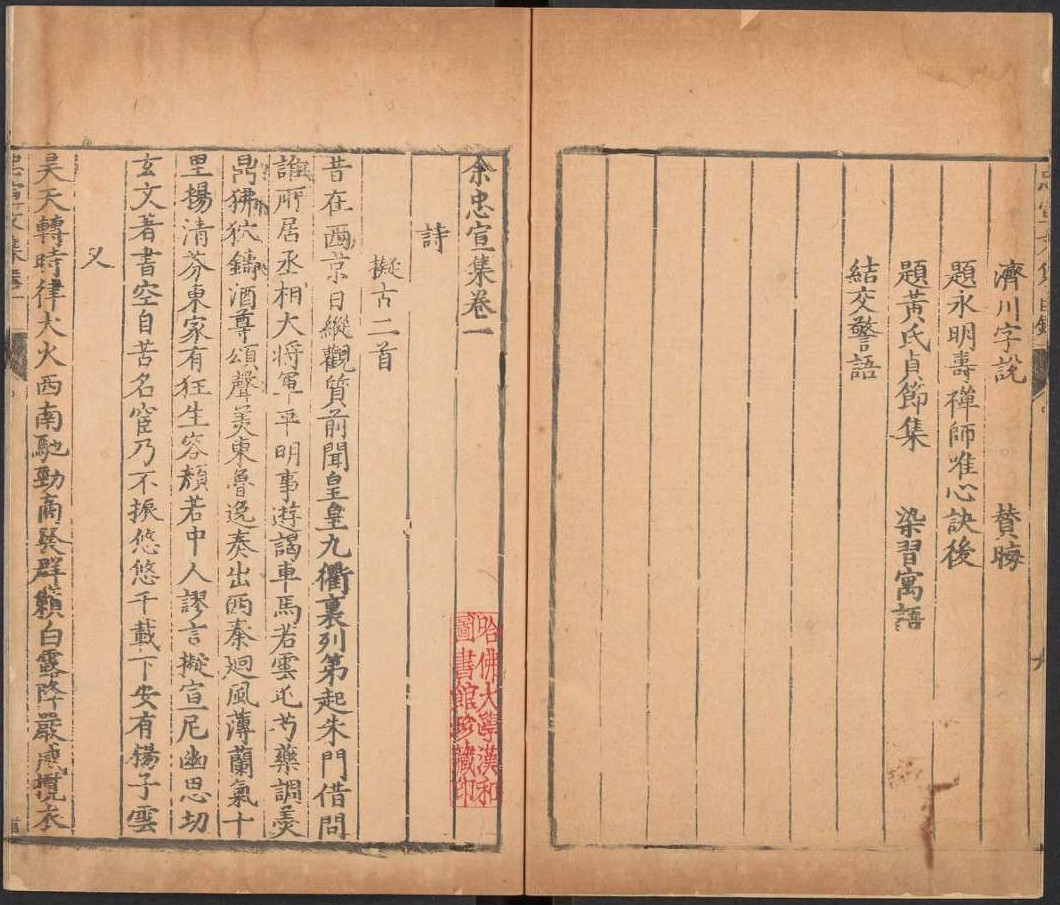 濟川字說 贊晦
題永明壽禪師唯心訣後
題黃氏貞節集 染習寓語
結交警語
九
余忠宣集卷一
詩
擬古二首
昔在西京日縱觀質前聞皇皇九衢裏列第起朱門借問
誰所居丞相大將軍平明事遊謁車馬若雲屯芍藥調羹
鼎狒狖鑄酒尊頌聲美東魯逸奏出西秦廻風薄蘭氣十
里揚清芬東家有狂生容顏若中人謬言擬宣尼幽思切
玄文著書空自苦名宦乃不振悠悠千載下安有揚子雲
又
昊天轉時律大火西南馳勁商發群籟白露降嚴威攬衣
哈佛大學漢和
圖書館珍藏印